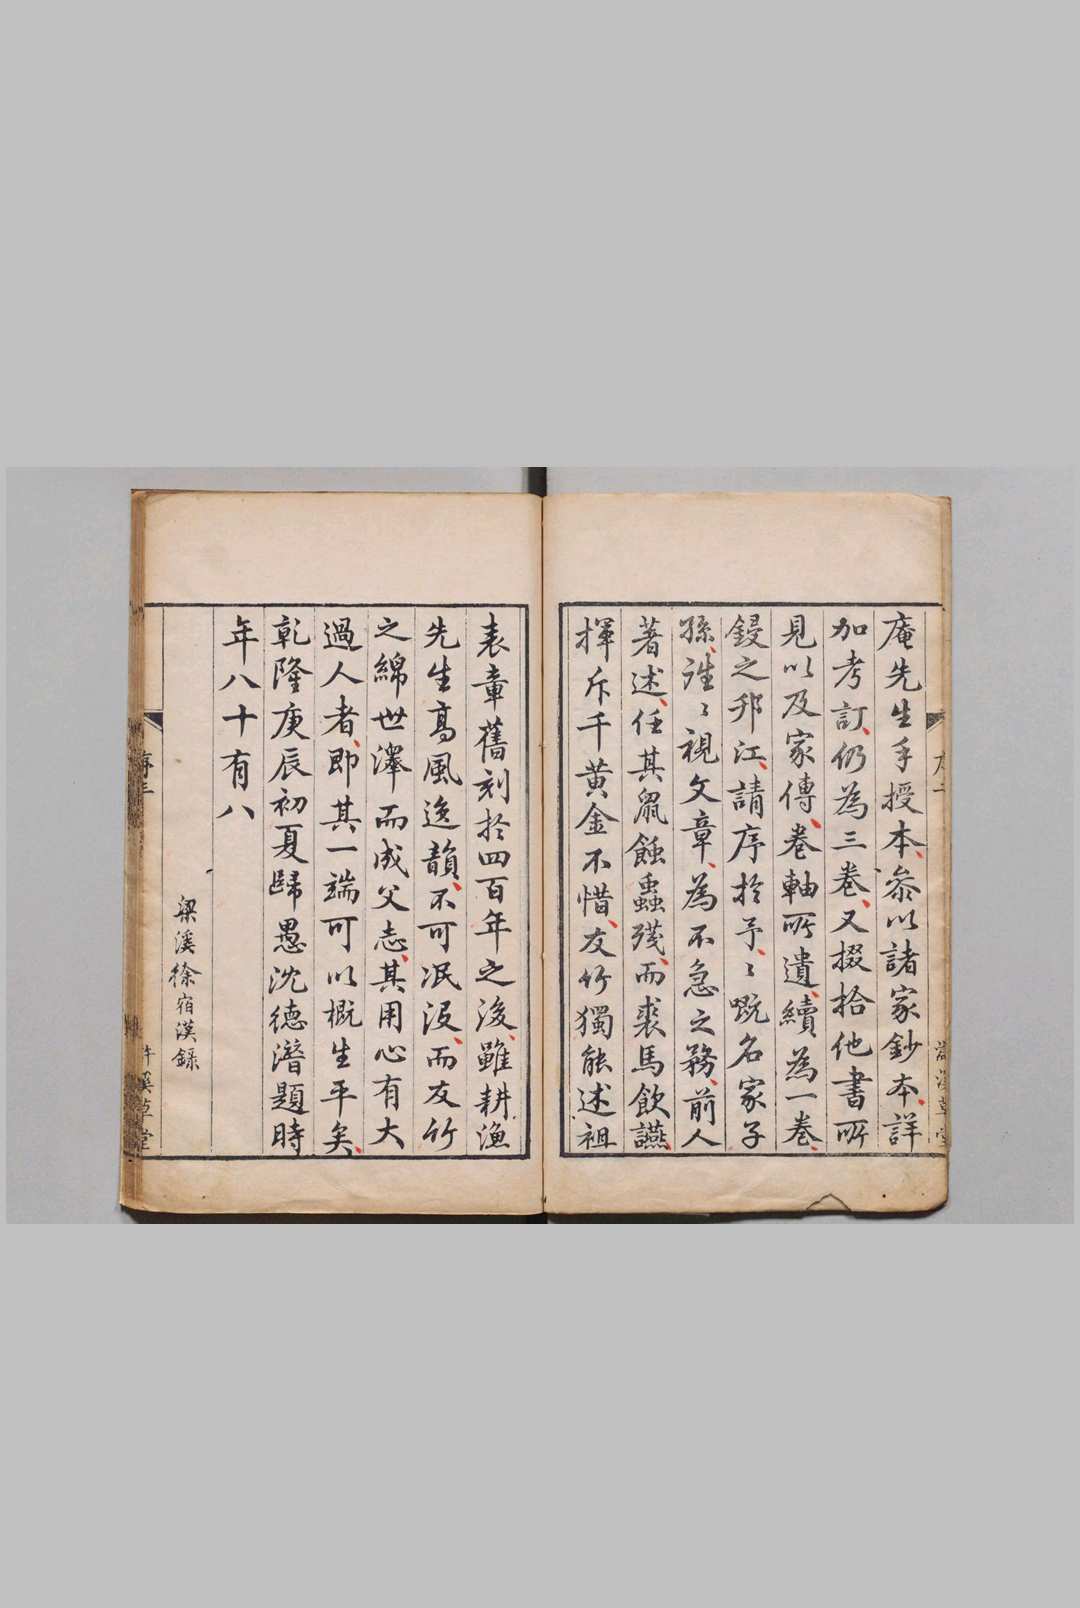 庵先生手授本、叅以諸家鈔本、詳
加考訂、仍為三卷、又掇拾他書所
見以及家傳、卷軸所遺、續為一卷、
鋟之邗江、請序於予、〻既名家子
孫、誰〻視文章、為不急之務、前人
著述、任其鼠蝕蟲殘、而裘馬飲讌、
揮斥千黄金不惜、友竹獨能述祖
表章舊刻於四百年之後、雖耕漁
先生高風逸韻、不可泯没、而友竹
之綿世澤而成父志、其用心有大
過人者、即其一端可以概生平矣、
乾隆庚辰初夏歸愚沈德潛題時
年八十有八
梁溪徐宿漢錄